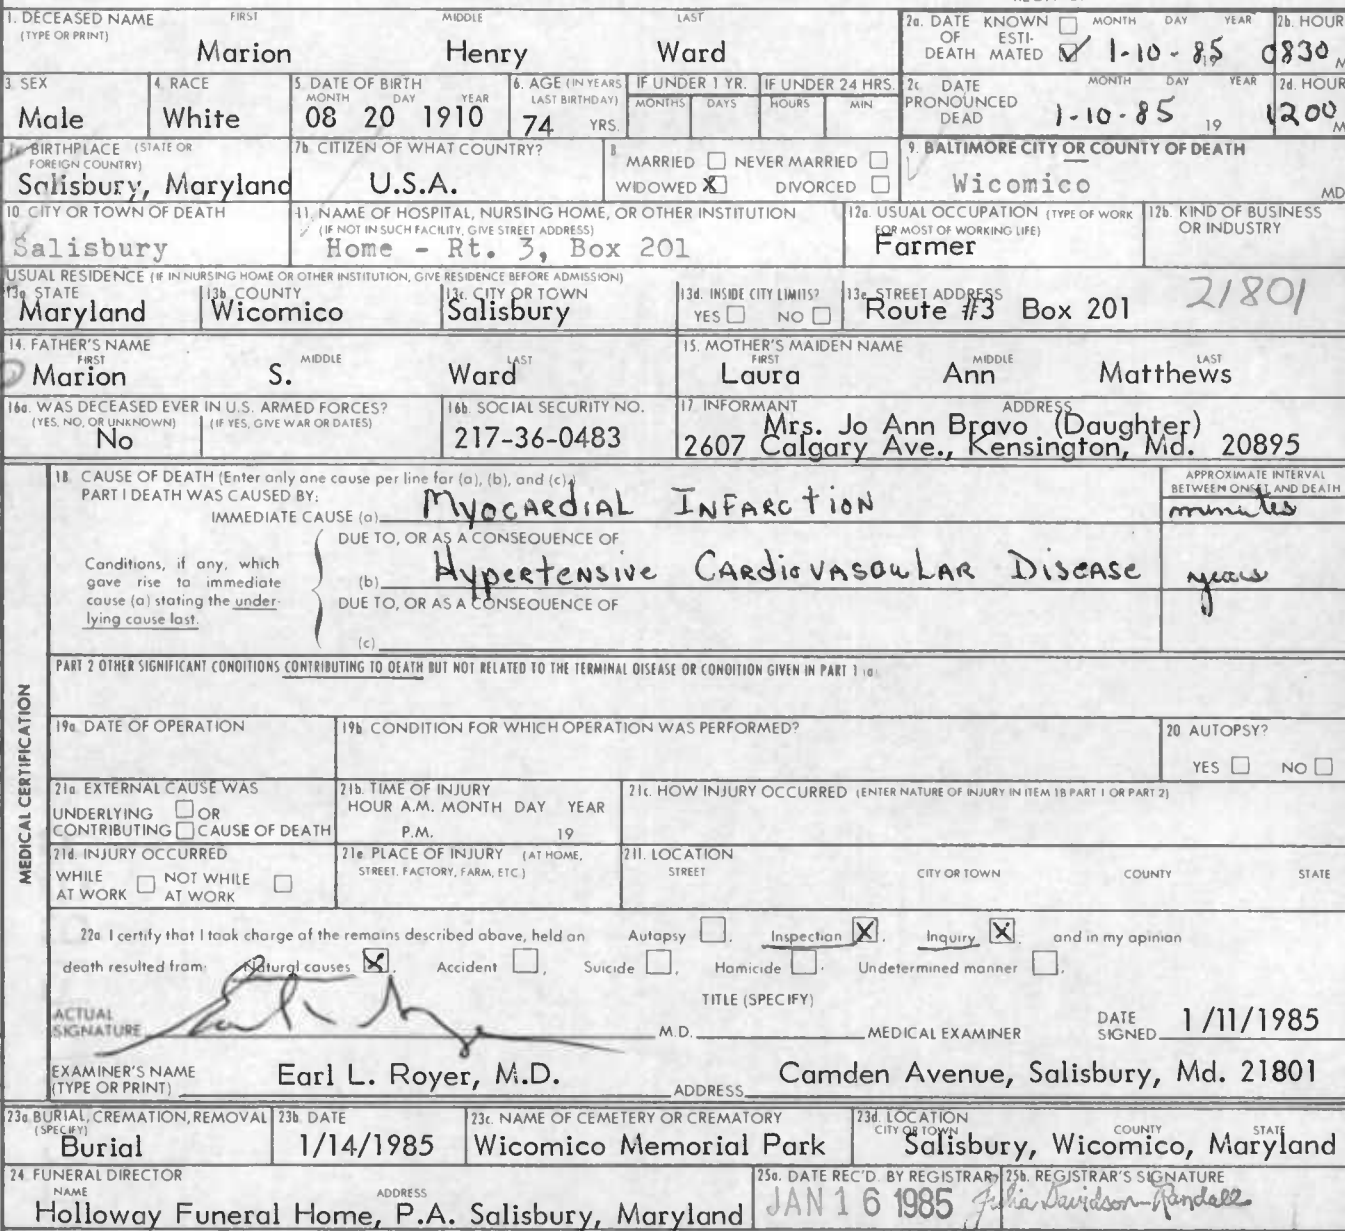 1. DECEASED NAME FIRST MIDDLE LAST
(TYPE OR PRINT)
Marion Henry Ward
2a. DATE KNOWN OF ESTI- DEATH MATED MONTH DAY YEAR 2b. HOUR
1-10-85 19 0830 M
3. SEX 4. RACE 5. DATE OF BIRTH 6. AGE (IN YEARS LAST BIRTHDAY) IF UNDER 1 YR. IF UNDER 24 HRS.
MONTH DAY YEAR MONTHS DAYS HOURS MIN
Male White 08 20 1910 74 YRS.
2c DATE PRONOUNCED DEAD MONTH DAY YEAR 2d. HOUR
1-10-85 19 1200 M
BIRTHPLACE (STATE OR FOREIGN COUNTRY) 7b. CITIZEN OF WHAT COUNTRY? 8
Salisbury, Maryland U.S.A.
MARRIED NEVER MARRIED
WIDOWED X DIVORCED
9. BALTIMORE CITY OR COUNTY OF DEATH
Wicomico MD
10 CITY OR TOWN OF DEATH
Salisbury
11. NAME OF HOSPITAL, NURSING HOME, OR OTHER INSTITUTION
(IF NOT IN SUCH FACILITY, GIVE STREET ADDRESS)
Home - Rt. 3, Box 201
12a. USUAL OCCUPATION (TYPE OF WORK FOR MOST OF WORKING LIFE)
Farmer
12b. KIND OF BUSINESS OR INDUSTRY
USUAL RESIDENCE (IF IN NURSING HOME OR OTHER INSTITUTION, GIVE RESIDENCE BEFORE ADMISSION)
13a. STATE 13b. COUNTY 13c. CITY OR TOWN 13d. INSIDE CITY LIMITS? 13e. STREET ADDRESS
Maryland Wicomico Salisbury YES NO Route #3 Box 201 21801
14. FATHER'S NAME
FIRST MIDDLE LAST
Marion S. Ward
15. MOTHER'S MAIDEN NAME
FIRST MIDDLE LAST
Laura Ann Matthews
16a. WAS DECEASED EVER IN U.S. ARMED FORCES?
(YES, NO, OR UNKNOWN) (IF YES, GIVE WAR OR DATES)
No
16b. SOCIAL SECURITY NO.
217-36-0483
17. INFORMANT ADDRESS
Mrs. Jo Ann Bravo (Daughter)
2607 Calgary Ave., Kensington, Md. 20895
MEDICAL CERTIFICATION
18 CAUSE OF DEATH (Enter only one cause per line for (a), (b), and (c).)
PART I DEATH WAS CAUSED BY:
APPROXIMATE INTERVAL BETWEEN ONSET AND DEATH
IMMEDIATE CAUSE (a) Myocardial Infarction minutes
DUE TO, OR AS A CONSEQUENCE OF
Conditions, if any, which gave rise to immediate cause (a) stating the under- lying cause last.
(b) Hypertensive Cardiovasoular Disease years
DUE TO, OR AS A CONSEQUENCE OF
(c)
PART 2 OTHER SIGNIFICANT CONDITIONS CONTRIBUTING TO DEATH BUT NOT RELATED TO THE TERMINAL DISEASE OR CONDITION GIVEN IN PART 1 (a)
19a. DATE OF OPERATION 19b CONDITION FOR WHICH OPERATION WAS PERFORMED? 20 AUTOPSY?
YES NO
21a. EXTERNAL CAUSE WAS
UNDERLYING OR
CONTRIBUTING CAUSE OF DEATH
21b. TIME OF INJURY
HOUR A.M. MONTH DAY YEAR
P.M. 19
21c. HOW INJURY OCCURRED (ENTER NATURE OF INJURY IN ITEM 18 PART 1 OR PART 2)
21d. INJURY OCCURRED
WHILE AT WORK NOT WHILE AT WORK
21e PLACE OF INJURY (AT HOME, STREET, FACTORY, FARM, ETC.)
21f. LOCATION
STREET CITY OR TOWN COUNTY STATE
22a I certify that I took charge of the remains described above, held an Autopsy , Inspection X, Inquiry X, and in my opinion
death resulted from: Natural causes X, Accident , Suicide , Homicide , Undetermined manner .
TITLE (SPECIFY)
ACTUAL SIGNATURE M.D. MEDICAL EXAMINER DATE SIGNED 1/11/1985
EXAMINER'S NAME (TYPE OR PRINT) Earl L. Royer, M.D. ADDRESS Camden Avenue, Salisbury, Md. 21801
23a BURIAL, CREMATION, REMOVAL (SPECIFY) 23b. DATE 23c. NAME OF CEMETERY OR CREMATORY 23d. LOCATION CITY OR TOWN COUNTY STATE
Burial 1/14/1985 Wicomico Memorial Park Salisbury, Wicomico, Maryland
24 FUNERAL DIRECTOR
NAME ADDRESS
Holloway Funeral Home, P.A. Salisbury, Maryland
25a. DATE REC'D. BY REGISTRAR 25b. REGISTRAR'S SIGNATURE
JAN 16 1985 Julia Davidson-Randall